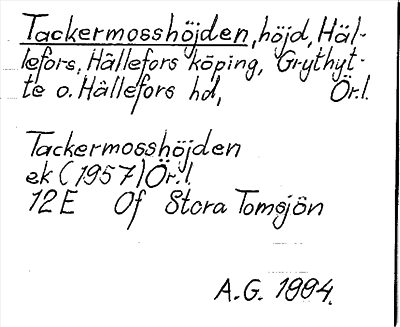 Tackermosshöjden, höjd, Häl-
lefors, Hällefors köping, Grythyt-
te o. Hällefors hd, Ör.l.
Tackermosshöjden
ek (1957) Ör.l.
12 E Of Stora Tomsjön
A.G. 1994.